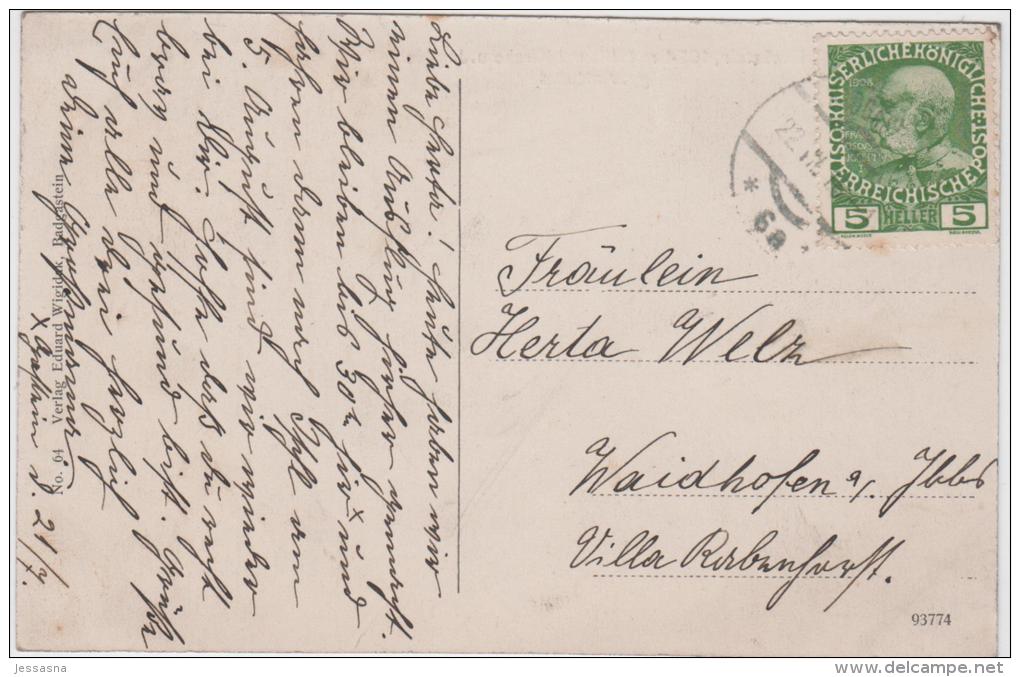 Liebe Herta! Heute haben wir
einen Ausflug hieher gemacht.
Wir bleiben bis 30ten hier x und
fahren dann nach Ischl am
5. August sind wir wieder
bei Dir. Hoffe daß du recht
brav und gesund bist. Grüße
Euch alle von herzlich
Deine Großmama.
x Gastein d. 21/7.
No. 64 Verlag Eduard Wigidal, Badgastein
K.K. ÖSTERREICHISCHE POST
KAISERLICHE KÖNIGLICHE
1908
5 HELLER 5
22. VII
* 6a
Fräulein
Herta Welz
Waidhofen a/. Ybbs
Villa Rabenhorst.
93774
jessasna
http://www.delcampe.net